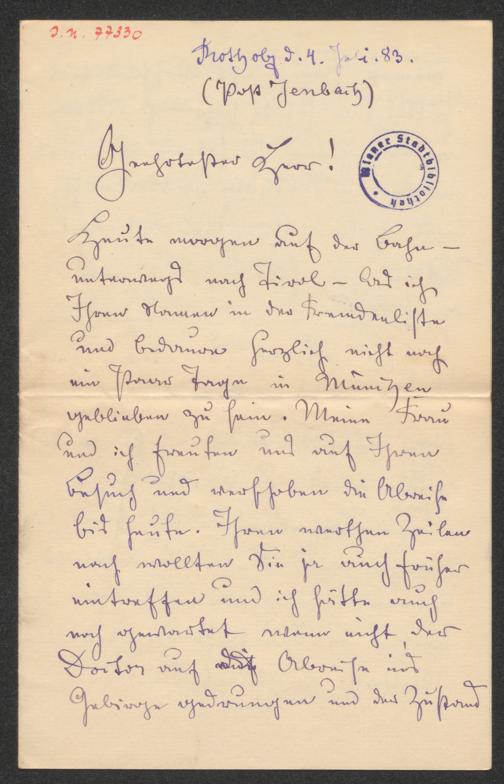 J.N. 77330
Rotholz d. 4. Juli. 83.
(Post Jenbach)
Wiener Stadtbibliothek
Geehrtester Herr!
Heute morgen auf der Bahn —
unterwegs nach Tirol — las ich
Ihren Namen in der Fremdenliste
und bedaure herzlich nicht noch
ein Paar Tage in München
geblieben zu sein. Meine Frau
und ich freuten uns auf Ihren
Besuch und verschoben die Abreise
bis heute. Ihren werthen Zeilen
nach wollten Sie ja auch früher
eintreffen und ich hätte auch
noch gewartet wenn nicht der
Doctor auf Abreise ins
Gebirge gedrungen und der Zustand